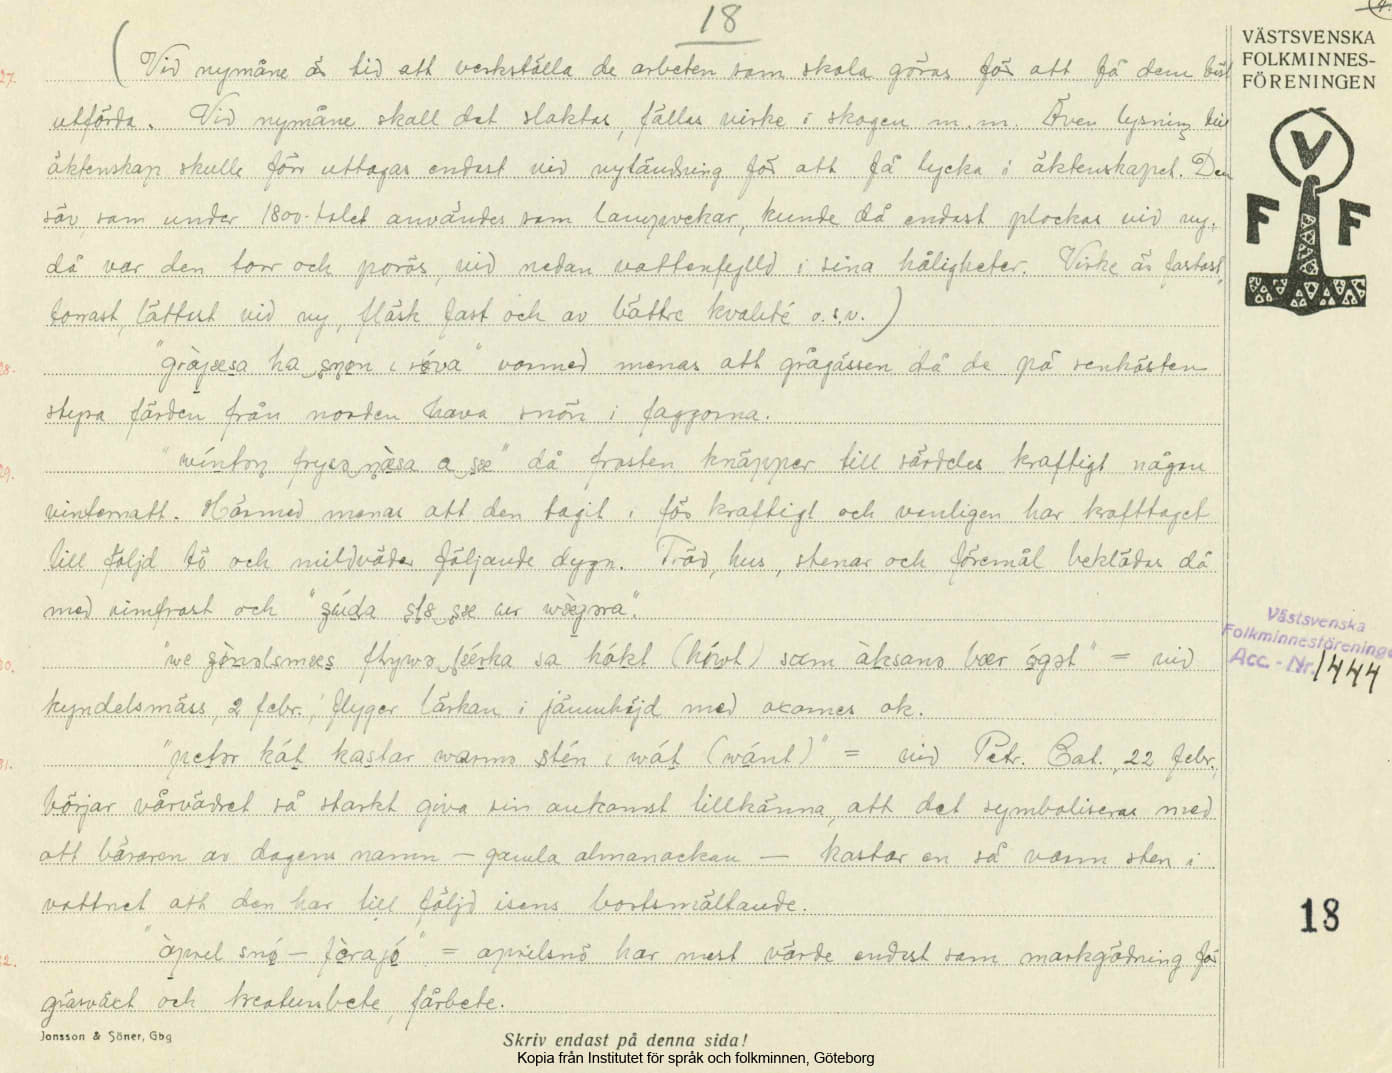 18
27. (Vid nymåne är tid att verkställa de arbeten som skola göras för att få dem bäst
utförda. Vid nymåne skall det slaktas, fällas virke i skogen m.m. Även lysning till
äktenskap skulle förr uttagas endast vid nytändning för att få lycka i äktenskapet. Den
säv, som under 1800-talet användes som lampvekar, kunde då endast plockas vid ny,
då var den torr och porös, vid nedan vattenfylld i sina håligheter. Virke är fastast,
torrast, lättast vid ny, fläsk fast och av bättre kvalité o.s.v.)
28. "gràjæsa ha snøn i røva" varmed menas att grågässen då de på senhösten
styra färden från norden hava snön i faggorna.
29. "wínton frysə næsa a sæ" då frosten knäpper till särdeles kraftigt någon
vinternatt. Härmed menas att den tagit i för kraftigt och vanligen har krafttaget
till följd tö och mildväder följande dygn. Träd, hus, stenar och föremål beklädas då
med rimfrost och " sæ ur wægəra".
30. "we flywə sa hökt (höwt) som àksanə bær ógət" = vid
kyndelsmäss, 2 febr., flyger lärkan i jämnhöjd med oxarnes ok.
31. "petər kát kastar warmə stén i wát (wánt)" = vid Petr. Cat., 22 febr.,
börjar vårvädret så starkt giva sin ankomst tillkänna, att det symboliseras med
att bäraren av dagens namn – gamla almanackan – kastar en så varm sten i
vattnet att den har till följd isens bortsmältande.
32. "àprel snø – fòrajø" = aprilsnö har mest värde endast som markgödning för
gräsväxt och kreatursbete, fårbete.
Jonsson & Söner, Gbg
Skriv endast på denna sida!
Kopia från Institutet för språk och folkminnen, Göteborg
VÄSTSVENSKA
FOLKMINNES-
FÖRENINGEN
V
F F
Västsvenska
Folkminnesföreningen
Acc.-Nr. 1444
18